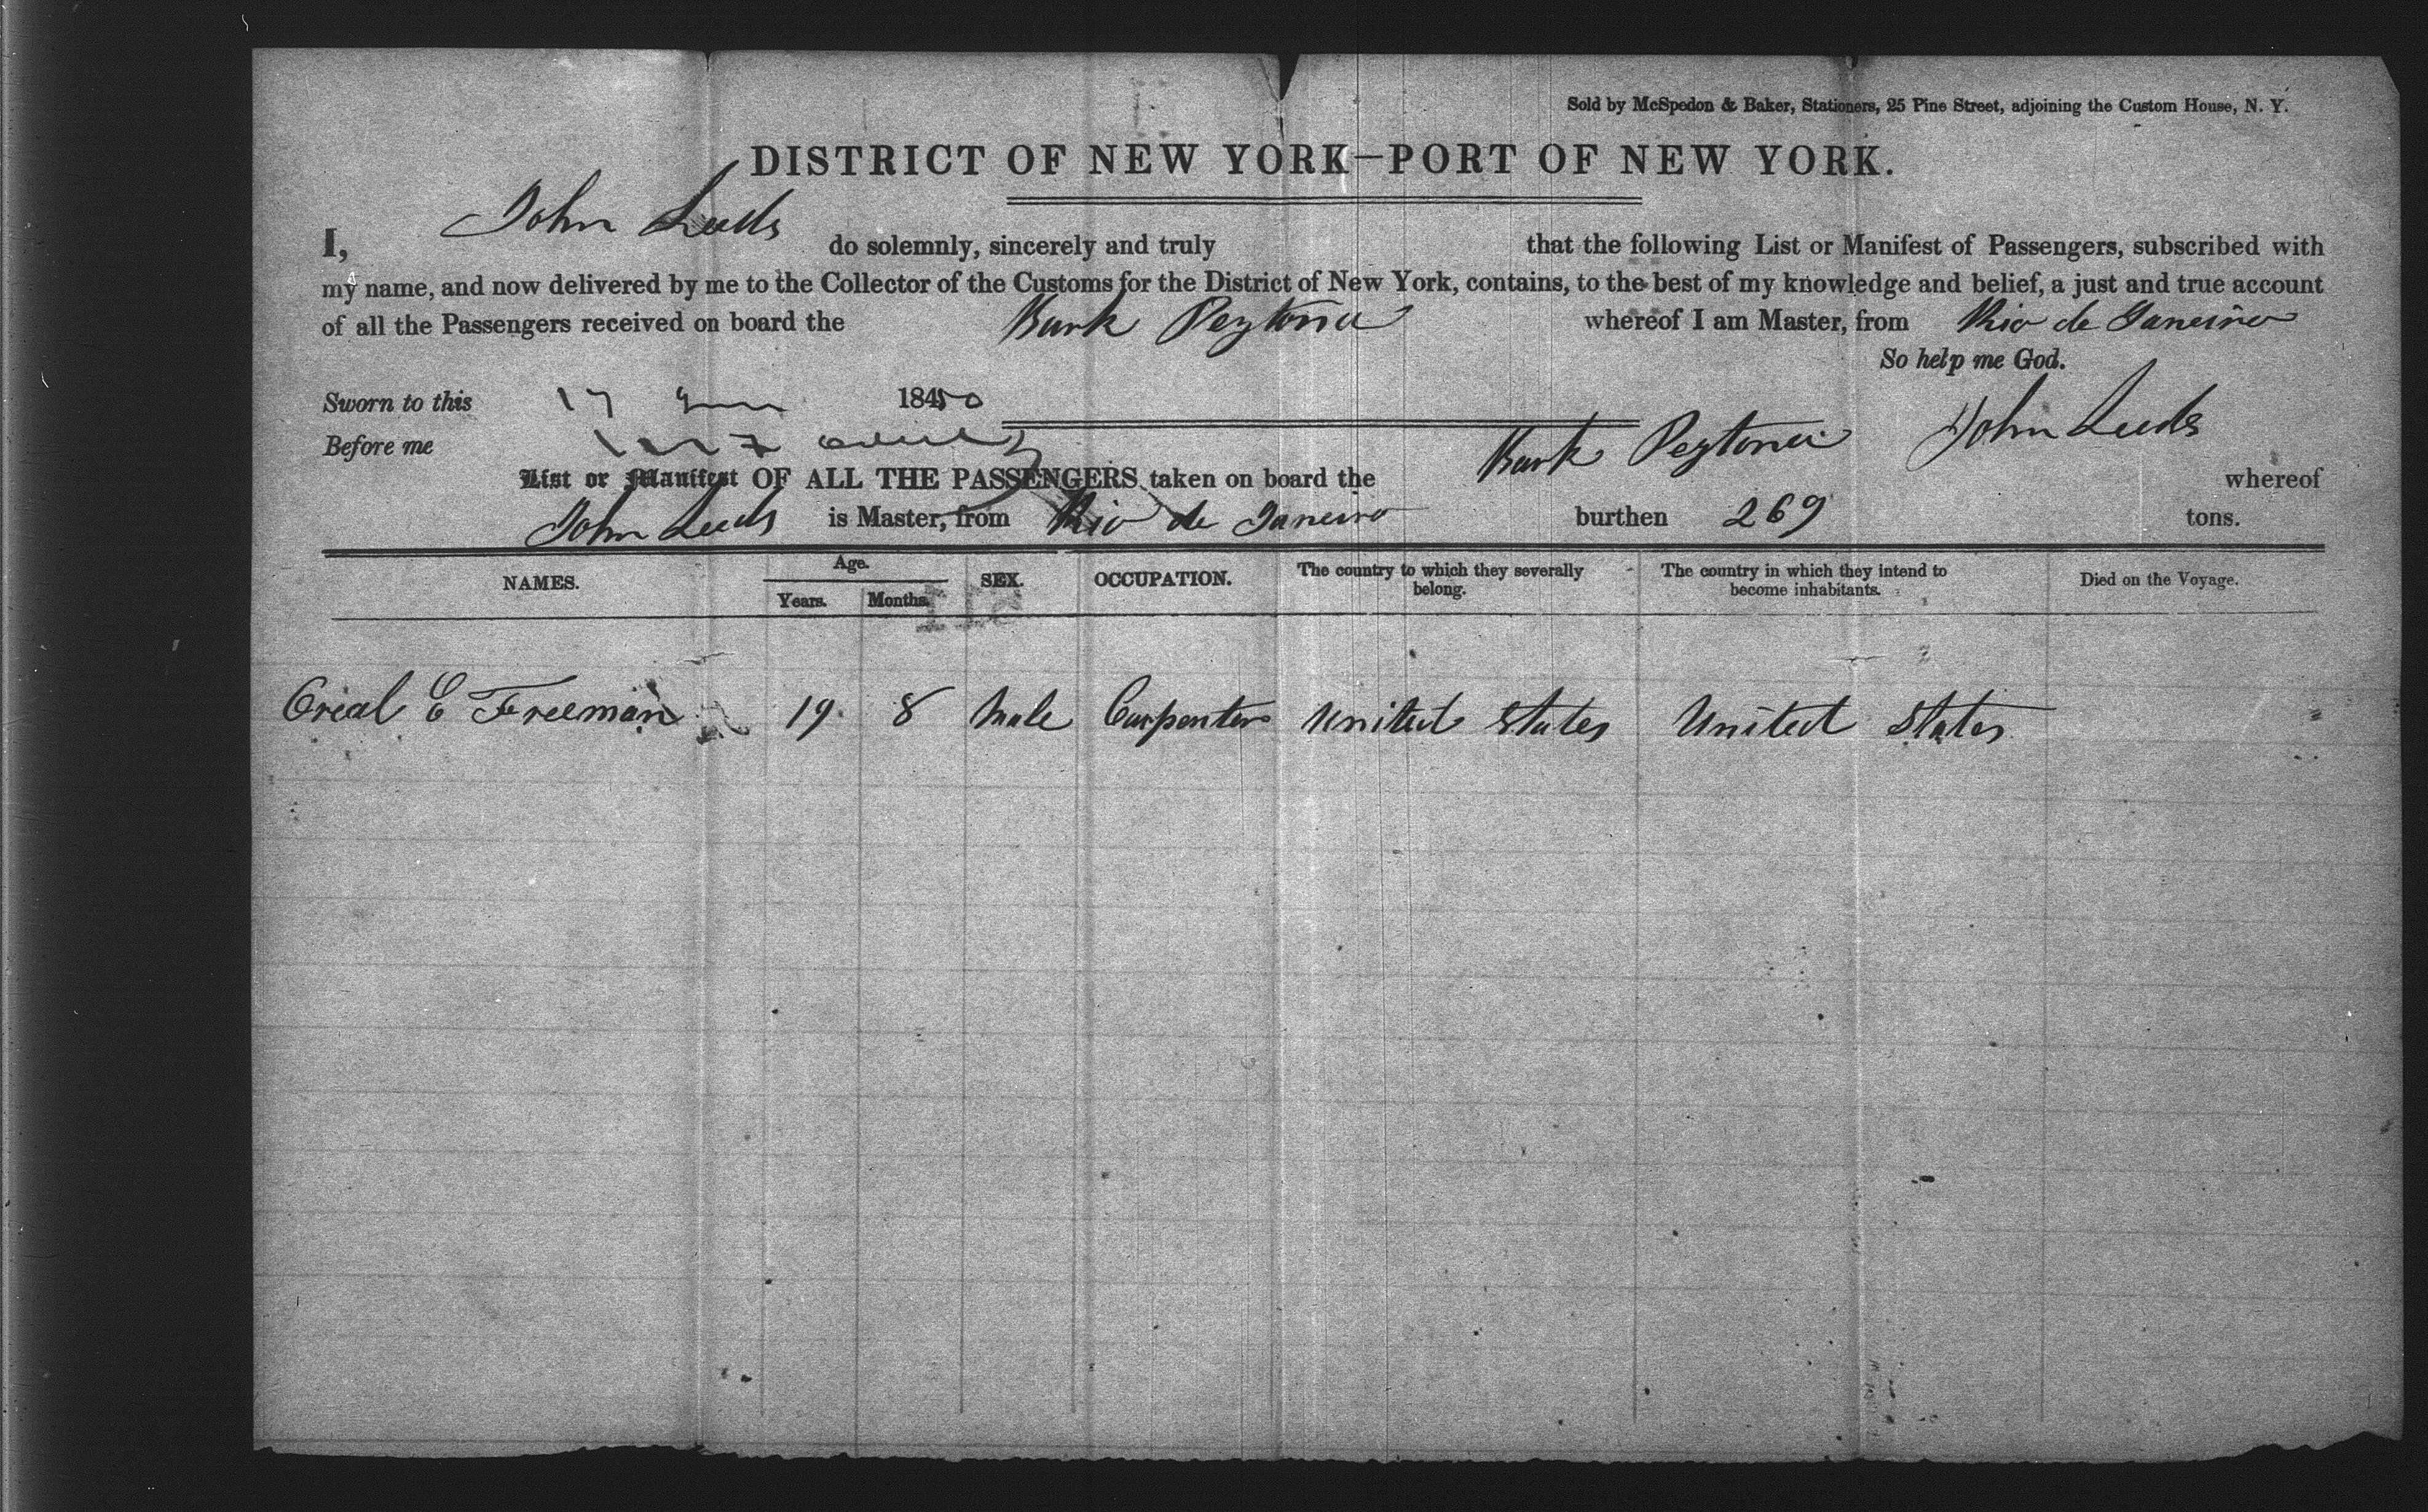 Sold by McSpedon & Baker, Stationers, 25 Pine Street, adjoining the Custom House, N. Y.
DISTRICT OF NEW YORK—PORT OF NEW YORK.
I, John Leeds do solemnly, sincerely and truly that the following List or Manifest of Passengers, subscribed with
my name, and now delivered by me to the Collector of the Customs for the District of New York, contains, to the best of my knowledge and belief, a just and true account
of all the Passengers received on board the Bark Peytona whereof I am Master, from Rio de Janeiro
So help me God.
Sworn to this 17 1850
Before me John Leeds
List or Manifest OF ALL THE PASSENGERS taken on board the Bark Peytona whereof
John Leeds is Master, from Rio de Janeiro burthen 269 tons.
NAMES. Age. Years. Months. SEX. OCCUPATION. The country to which they severally belong. The country in which they intend to become inhabitants. Died on the Voyage.
Oreal E Freeman 19 8 Male Carpenter United States United States